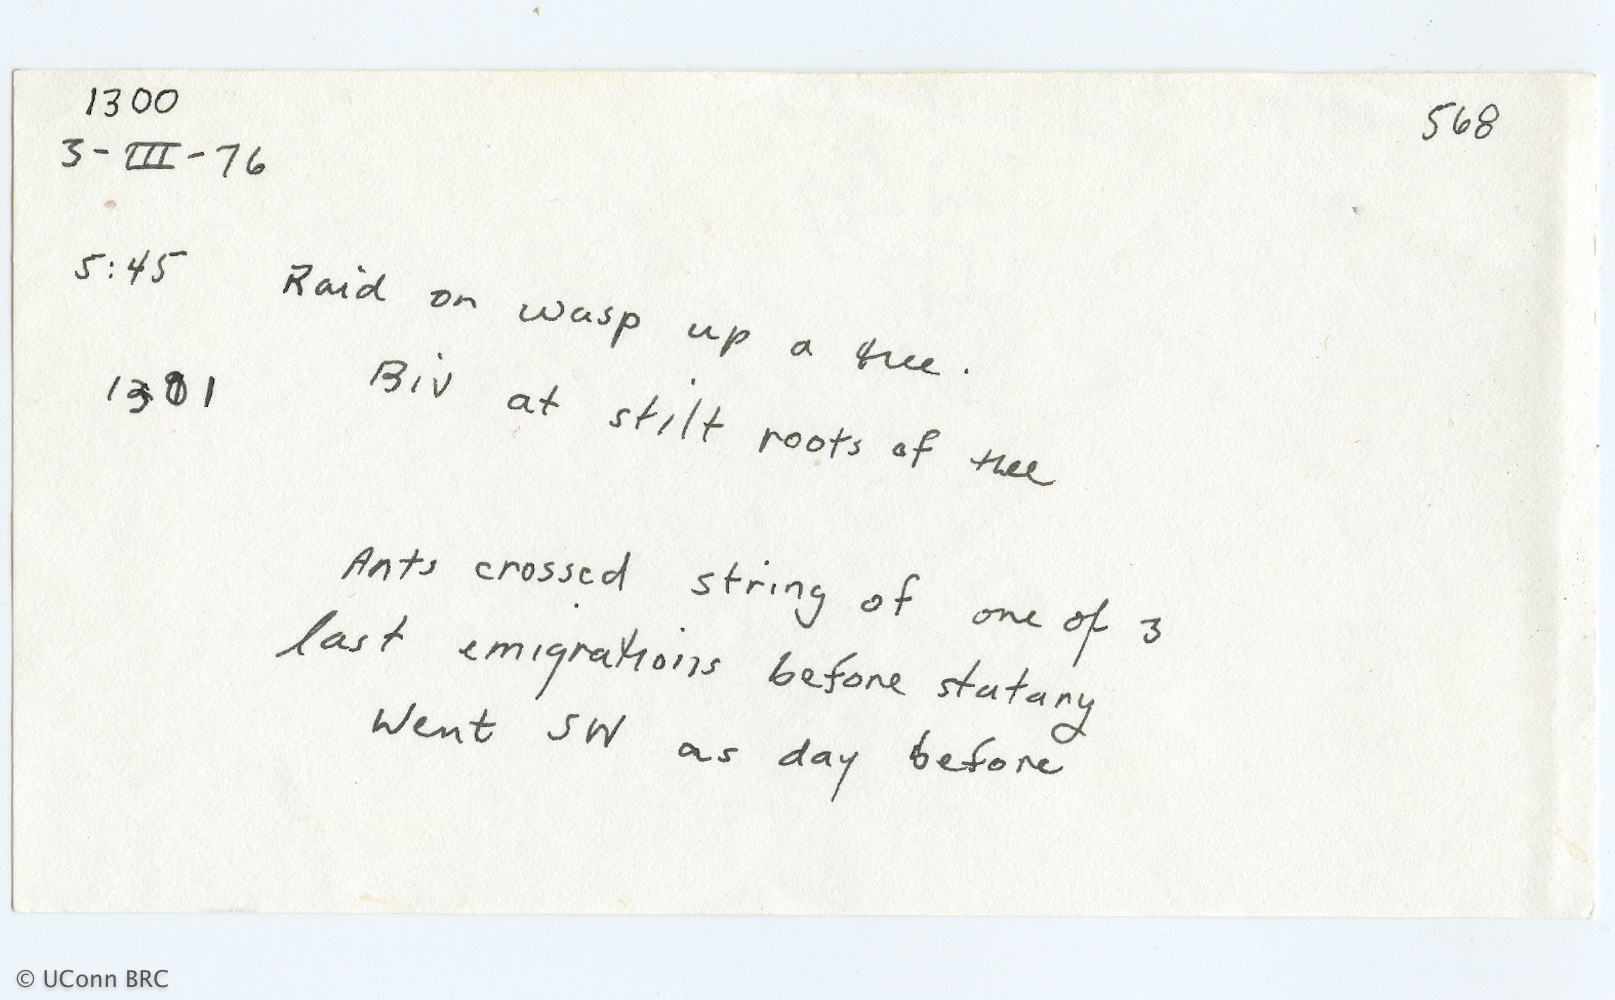 1300
568
3-III-76
5:45 Raid on wasp up a tree.
1301 Biv at stilt roots of tree
Ants crossed string of one of 3
last emigrations before statary
Went SW as day before
© UConn BRC